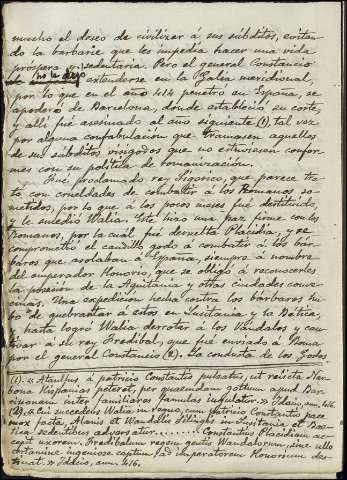 mucho el deseo de civilizar á sus súbditos, evitan-
do la barbarie que les impedia hacer una vida
próspera y sedentaria. Pero el general Constancio
no le dejó extenderse en la Galia meridional,
por lo que en el año 414 penetró en España, se
apoderó de Barcelona, donde estableció su corte,
y allí fué asesinado al año siguiente (1), tal vez
por alguna confabulación que tramasen aquellos
de sus súbditos visigodos que no estuviesen confor-
mes con su política de romanización.
Fué proclamado rey Sigerico, que parece tra-
tó con crueldades de combatir á los Romanos so-
metidos, por lo que á los pocos meses fué destituido,
y le sucedió Walia. Este hizo una paz firme con los
Romanos, por la cual fué devuelta Placidia, y se
comprometió el caudillo godo á combatir á los bár-
baros que asolaban á España, siempre á nombre
del emperador Honorio, que se obligó á reconocerles
la posesión de la Aquitania y otras ciudades conve-
cinas. Una expedicion hecha contra los bárbaros hu-
bo de quebrantar á estos en Lusitania y la Bética,
y hasta logró Walia derrotar á los Vándalos y cau-
tivar á su rey Fredibal, que fué enviado á Roma
por el general Constancio (2). La conducta de los Godos
(1). « Ataulfus á patricio Constantio pulsatus, ut relicta Nar-
bona Hispanias peteret, per quemdam gothum apud Bar-
cinonem inter familiares fabulas jugulatur. » Idacio, ann. 416.
(2). « Cui succedens Walia in regno, cum patricio Constantio pace
mox facta, Alanis et Wandalis Silingis in Lusitania et Bae-
tica sedentibus adversatur...... Constantius Placidiam ac-
cepit uxorem. Fredibalum regem gentis Wandalorum, sine ullo
certamine ingeniose captum, ad imperatorem Honorium des-
tinat. » Idacio, ann. 416.